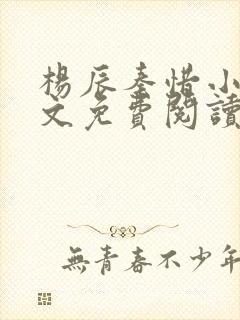 楊辰秦惜小
文免費閱讀
無青春不少年